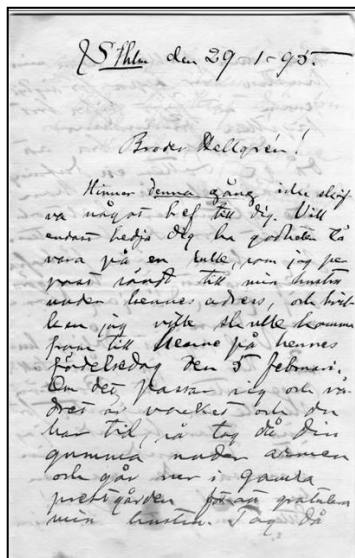 Sthlm den 29-1-95.
Broder Hellgrén!
Hinner denna gång icke skrif-
va något bref till dig. Vill
endast bedja dig ha godheten ta
vara på en rulle, som jag per
post sändt till min hustru
under hennes adress, och hvil-
ken jag ville skulle komma
fram till henne på hennes
födelsedag den 5 februari.
Om det passar sig och vä-
dret är vackert och du
har tid, så tag då din
gumma under armen
och går ner i gamla
prestgården för att gratulera
min hustru. Tag då